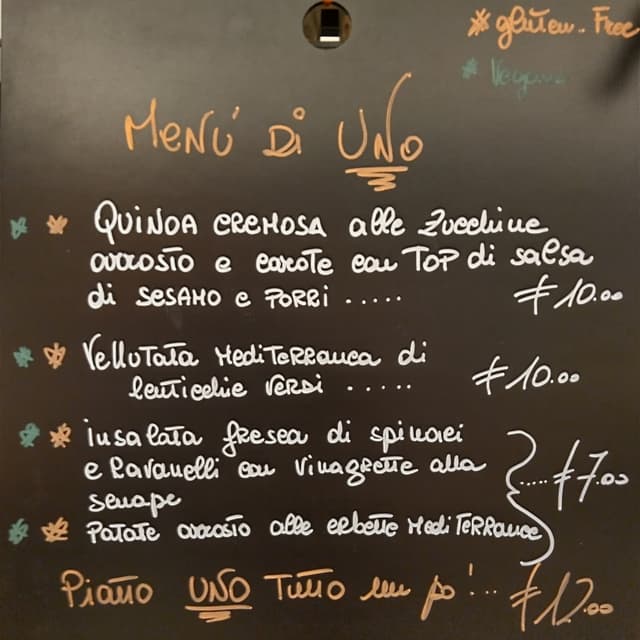 * gluten. Free
* Vegan
MENÚ DI UNO
* * QUINOA CREMOSA alle Zucchine
arrosto e carote con TOP di salsa
di SESAMO e PORRI ..... € 10.00
* * Vellutata MEDITERRANEA di
lenticchie VERDI ..... € 10.00
* * insalata fresca di spinaci
e Ravanelli con vinagrette alla
senape
..... € 7.00
* * PATATE arrosto alle erbette MEDITERRANEE
Piatto UNO TUTTO un po'... € 12.00